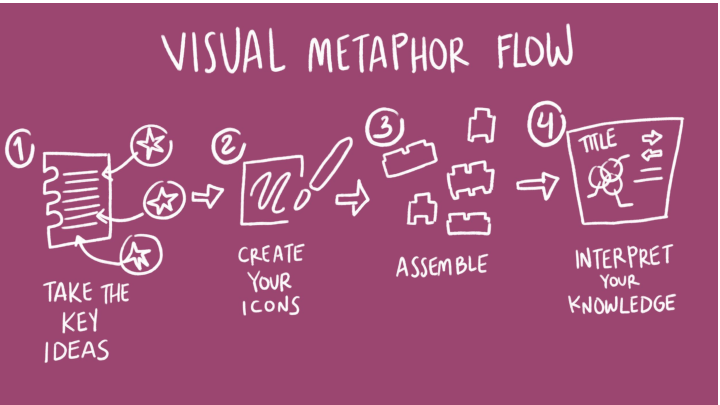 VISUAL METAPHOR FLOW
1
TAKE THE
KEY
IDEAS
2
CREATE
YOUR
ICONS
3
ASSEMBLE
4
TITLE
INTERPRET
YOUR
KNOWLEDGE